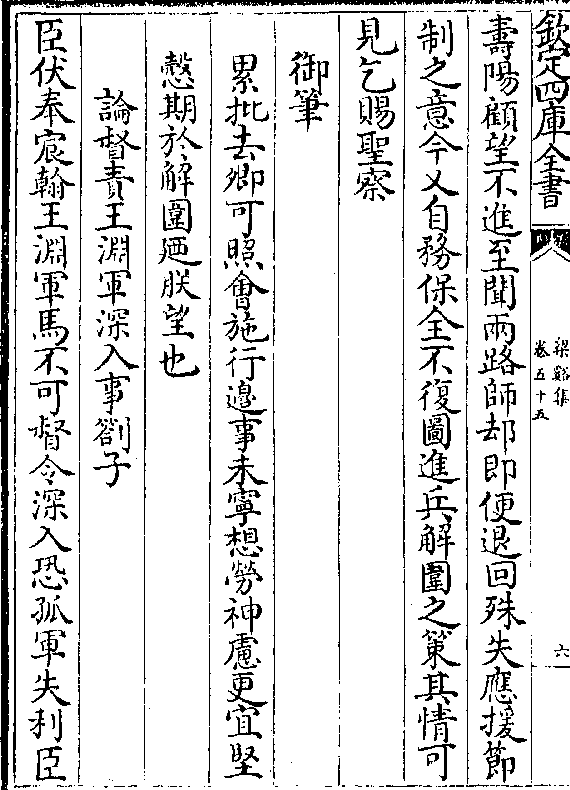 欽定四庫全書
梁谿集
卷五十五
六
壽陽顧望不進至聞兩路師却即便退回殊失應援節
制之意今又自務保全不復圖進兵解圍之策其情可
見乞賜聖察
御筆
累批去卿可照會施行邉事未寧想勞神慮更宜堅
慤期於解圍廼朕望也
論督責王淵軍深入事劄子
臣伏奉宸翰王淵軍馬不可督令深入恐孤軍失利臣